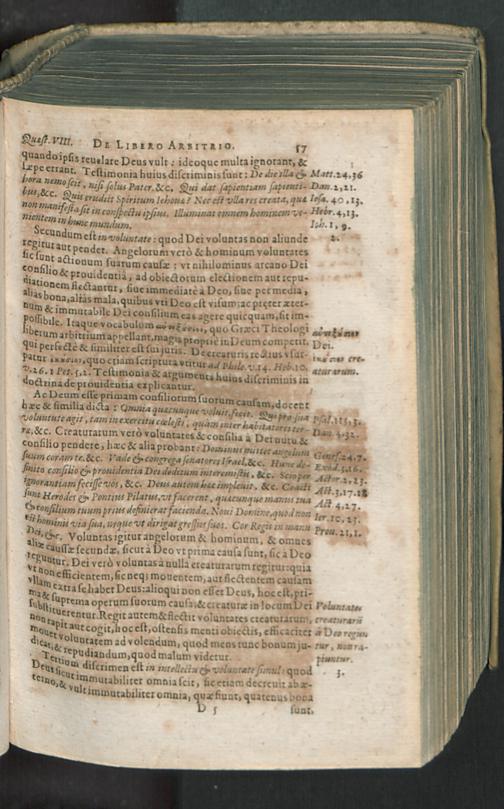 Quæst. VIII. DE LIBERO ARBITRIO. 57
quando ipsis reuelare Deus vult: ideoque multa ignorant, &
sæpe errant. Testimonia huius discriminis sunt: De die illa &
hora nemo scit, nisi solus Pater. &c. Qui dat sapientiam sapienti-
bus, &c. Quis erudit Spiritum Iehoua? Nec est vlla res creata, quæ
non manifesta sit in conspectu ipsius. Illuminat omnem hominem ve-
nientem in hunc mundum.
Matt. 24, 36
Dan. 2, 21.
Iesa. 40, 13.
Hebr. 4, 13.
Ioh. 1, 9.
Secundum est in voluntate: quod Dei voluntas non aliunde
2.
regitur aut pendet. Angelorum verò & hominum voluntates
sic sunt actionum suarum causæ: vt nihilominus arcano Dei
consilio & prouidentia, ad obiectorum electionem aut repu-
diationem flectantur, siue immediatè à Deo, siue per media,
alias bona, alias mala, quibus vti Deo est visum; ac præter æter-
num & immutabile Dei consilium eas agere quicquam, sit im-
possibile. Itaque vocabulum αὐτεξούσιον, quo Græci Theologi
liberum arbitrium appellant, magis propriè in Deum competit,
qui perfectè & simpliciter est sui iuris. De creaturis rectius vsur-
patur ἑκούσιον, quo etiam scriptura vtitur ad Phile. v. 14. Heb. 10.
v. 26. 1 Pet. 5, 2. Testimonia & argumenta huius discriminis in
doctrina de prouidentia explicantur.
αὐτεξούσιον
Dei.
ἑκούσιον cre-
aturarum.
Ac Deum esse primam consiliorum suorum causam, docent
hæc & similia dicta: Omnia quæcunque voluit, fecit. Qui pro sua
voluntate agit, tam in exercitu cælesti, quàm inter habitatores ter-
ræ, &c. Creaturarum verò voluntates & consilia à Dei nutu &
consilio pendere, hæc & alia probant: Dominus mittet angelum
suum coram te. &c. Vade & congrega senatores Israel, &c. Hunc de-
finito consilio & prouidentia Dei deditum interemistis, &c. Scio per
ignorantiam fecisse vos, &c. Deus autem hoc impleuit, &c. Coacti
sunt Herodes & Pontius Pilatus, vt facerent, quæcunque manus tua
& consilium tuum prius definierat facienda. Noui Domine, quod non
est hominis via sua, neque vt dirigat gressus suos. Cor Regis in manu
Dei, &c. Voluntas igitur angelorum & hominum, & omnes
aliæ caussæ secundæ, sicut à Deo vt prima causa sunt, sic à Deo
reguntur. Dei verò voluntas à nulla creaturarum regitur: quia
vt non efficientem, sic neque mouentem, aut flectentem causam
vllam extra se habet Deus: alioqui non esset Deus, hoc est, pri-
ma & suprema operum suorum causa; & creaturæ in locum Dei
substituerentur. Regit autem & flectit voluntates creaturarum,
non rapit aut cogit, hoc est, ostensis menti obiectis, efficaciter
mouet voluntatem ad volendum, quod mens tunc bonum ju-
dicat, & repudiandum, quod malum videtur.
Psal. 115, 3.
Dan. 4, 32.
Genes. 24, 7.
Exod. 3, 16.
Actor. 2, 23.
Act. 3, 17. 18
Act 4, 27.
Ier. 10, 23.
Prou. 21, 1.
Voluntates
creaturarū
à Deo regun
tur, non ra-
piuntur.
Tertium discrimen est in intellectu & voluntate simul: quod
3.
Deus sicut immutabiliter omnia scit, sic etiam decreuit ab æ-
terno, & vult immutabiliter omnia, quæ fiunt, quatenus bona
D 5 sunt.